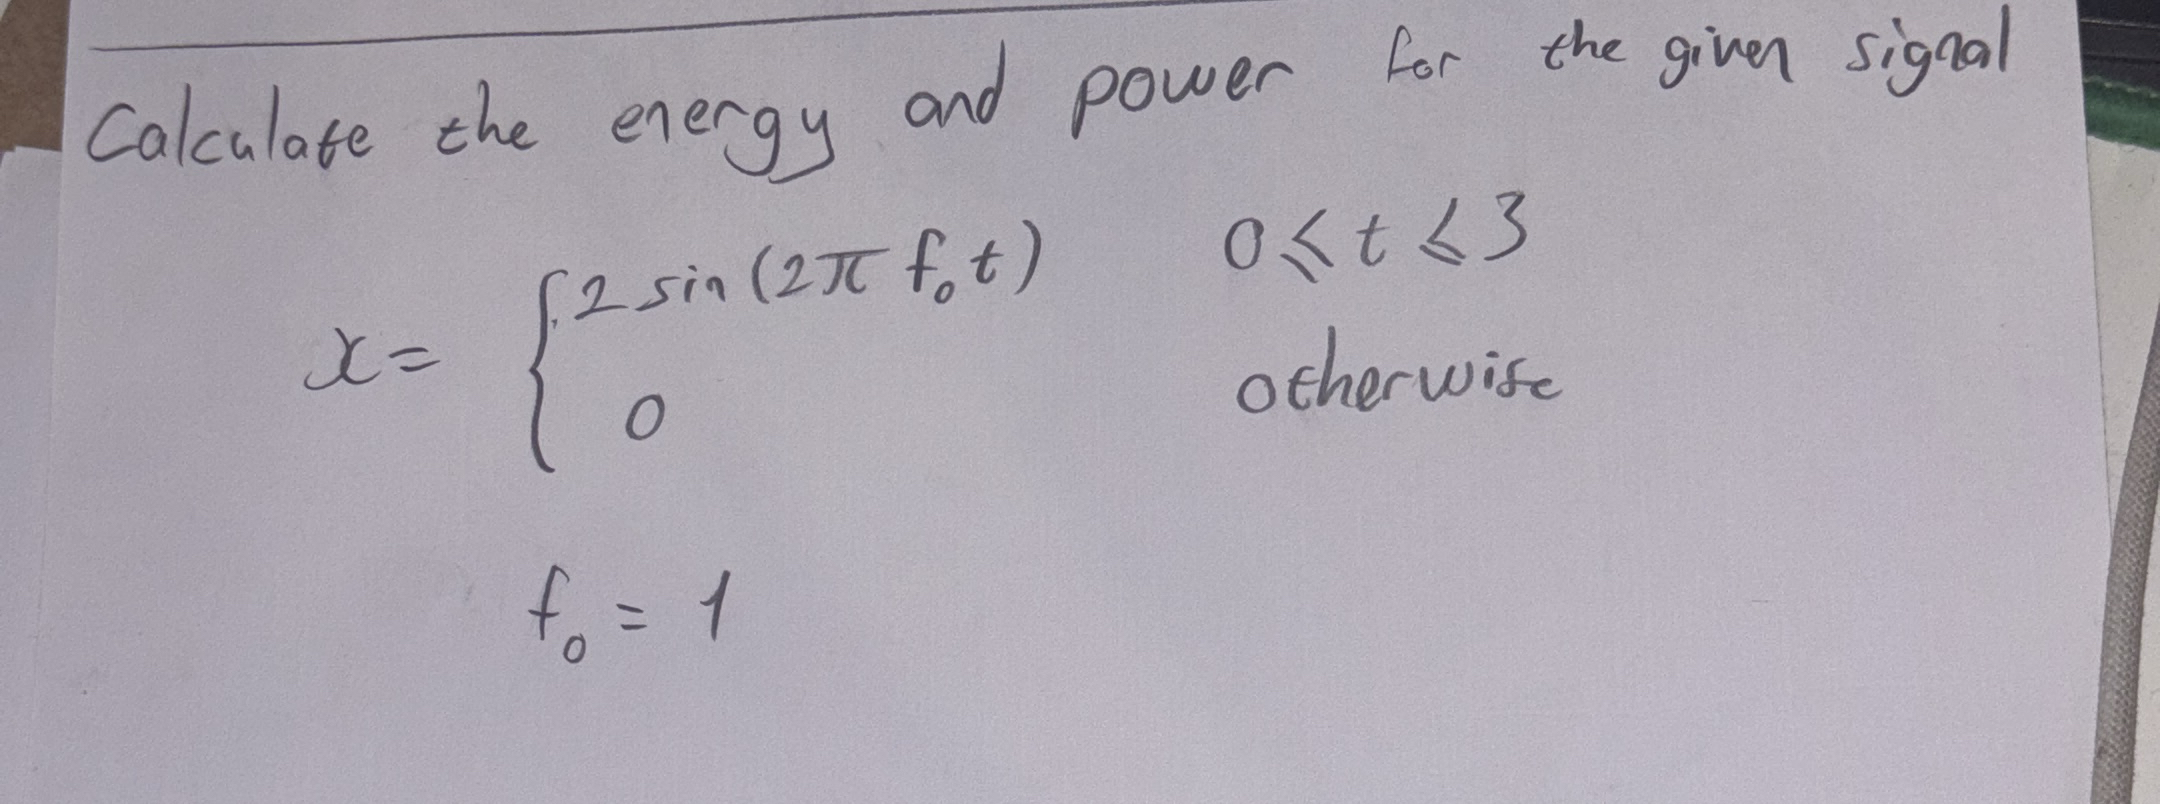 Calculate the energy and power for the given signal
x = { 2 sin (2π f₀ t) 0 ⩽ t ⩽ 3
0 otherwise
f₀ = 1